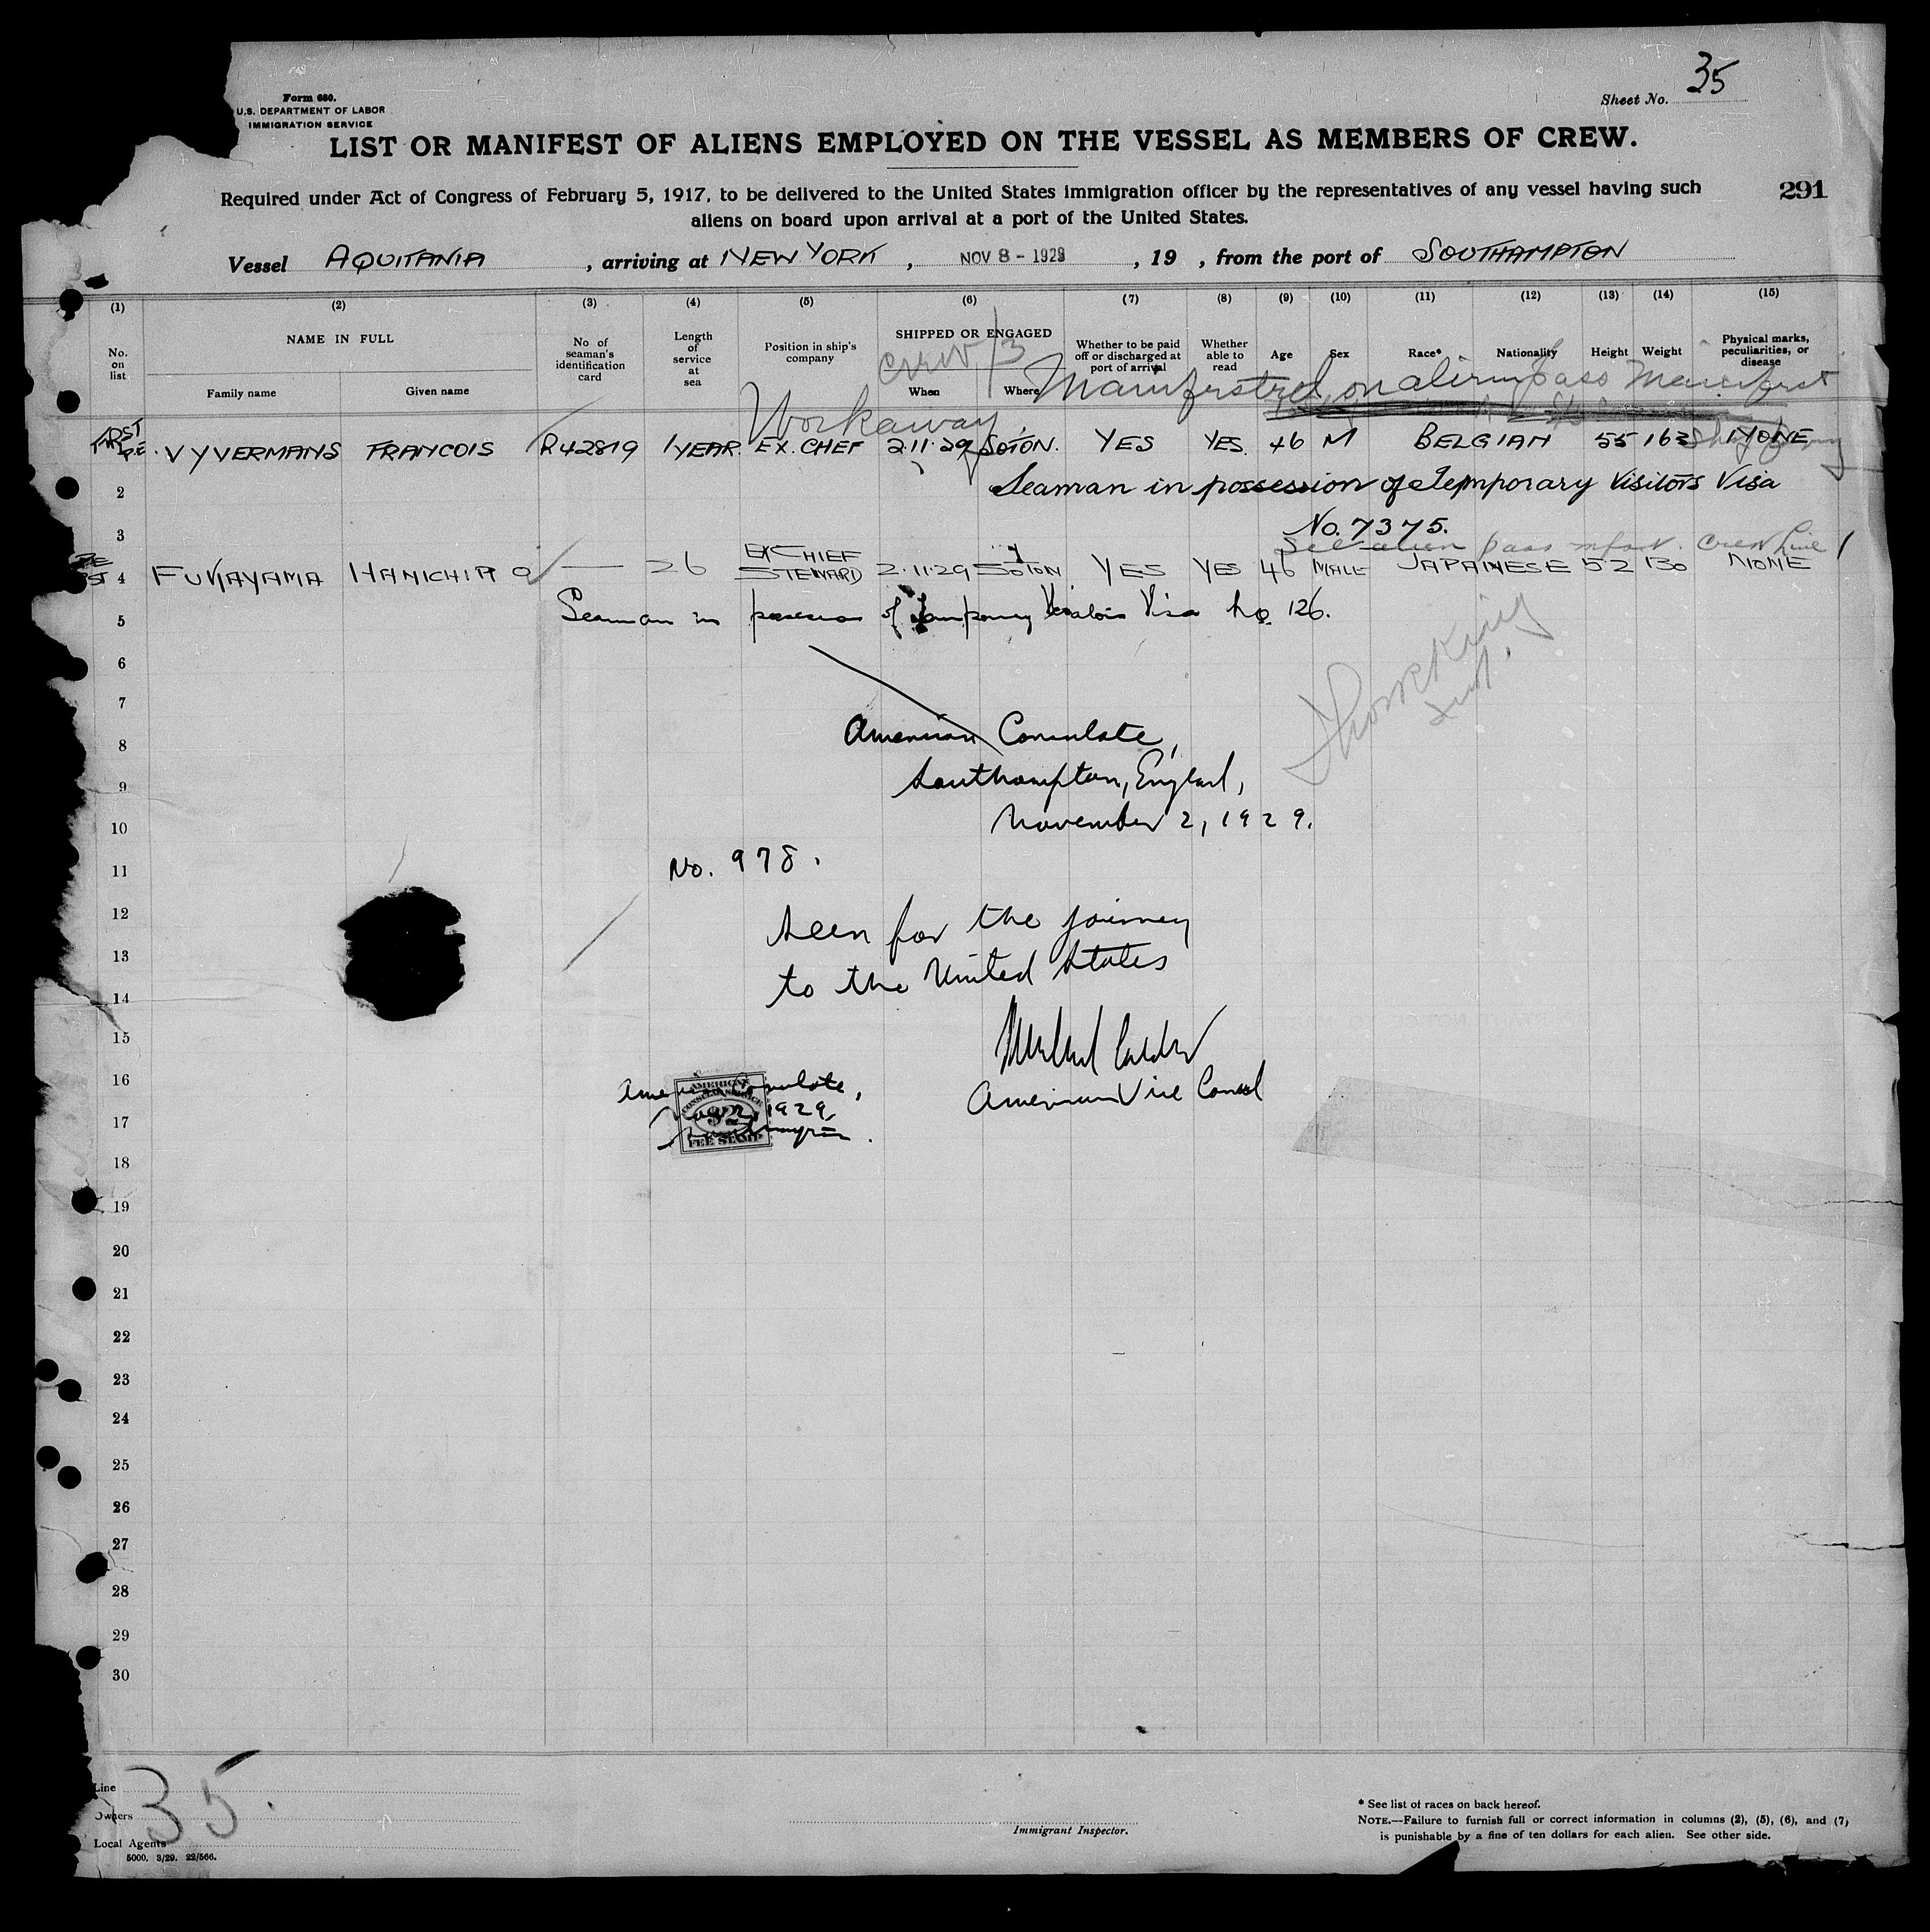 35
Form 680.
U.S. DEPARTMENT OF LABOR
IMMIGRATION SERVICE
Sheet No.
LIST OR MANIFEST OF ALIENS EMPLOYED ON THE VESSEL AS MEMBERS OF CREW.
Required under Act of Congress of February 5, 1917, to be delivered to the United States immigration officer by the representatives of any vessel having such
aliens on board upon arrival at a port of the United States.
291
Vessel AQUITANIA, arriving at NEW YORK, NOV 8 - 1929, 19 , from the port of SOUTHAMPTON
(1) (2) (3) (4) (5) (6) (7) (8) (9) (10) (11) (12) (13) (14) (15)
No. on list
NAME IN FULL
Family name Given name
No of seaman's identification card
Length of service at sea
Position in ship's company
SHIPPED OR ENGAGED
When Where
Whether to be paid off or discharged at port of arrival
Whether able to read
Age
Sex
Race*
Nationality
Height
Weight
Physical marks, peculiarities, or disease
crew 13
Workaway Manifested on alien pass Manifest
VYVERMANS FRANCOIS R42819 1 YEAR. EX. CHEF 2.11.29 SOTON. YES YES. 46 M BELGIAN 55 163 NONE
2 Seaman in possession of Temporary Visitors Visa
3 No. 7375.
See alien pass mfst. crew line 1
4 FUKAYAMA HANICHIRO — 26 EX CHIEF STEWARD 2.11.29 SOTON YES YES 46 MALE JAPANESE 52 130 NONE
5 Seaman in possession of temporary Visitors Visa No 126.
6
7
8 American Consulate,
9 Southampton, England,
10 November 2, 1929.
11 No. 978.
12 Seen for the journey
13
14 to the United States
15
16 American Consulate,
American Vice Consul
17 1929
AMERICAN
CONSULAR SERVICE
$2
FEE STAMP
18
19
20
21
22
23
24
25
26
27
28
29
30
35.
Line
Owners
Local Agents
5000. 3/29. 22/566.
Immigrant Inspector.
* See list of races on back hereof.
NOTE.—Failure to furnish full or correct information in columns (2), (5), (6), and (7)
is punishable by a fine of ten dollars for each alien. See other side.